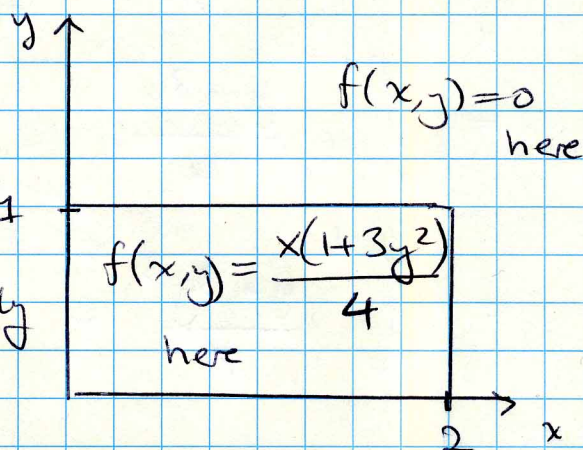 y
f(x,y)=0
here
1
f(x,y) = x(1+3y²)/4
here
y
2
x